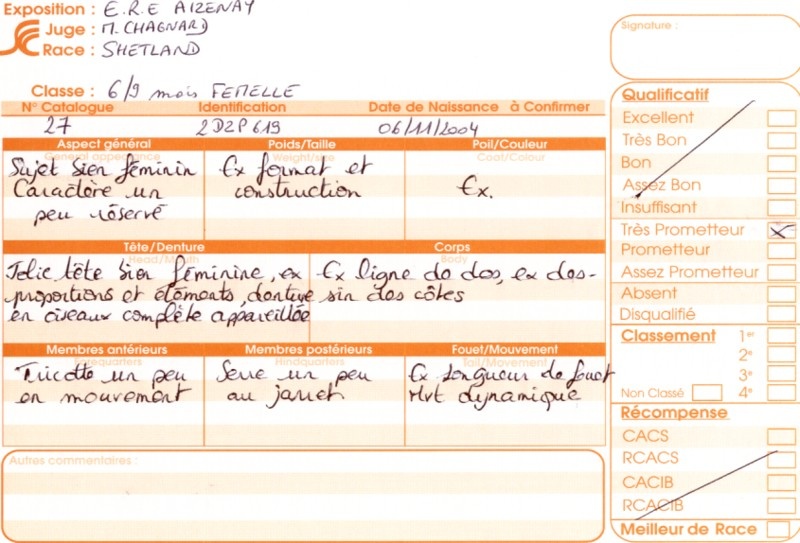 Exposition : E.R.E AIZENAY
Juge : M. CHAGNARD
Race : SHETLAND
Classe : 6/9 mois FEMELLE
Signature :
N° Catalogue Identification Date de Naissance à Confirmer
27 2DZP 619 06/11/2004
Aspect général Poids/Taille Poil/Couleur
General appearance Weight/size Coat/Colour
Sujet bien féminin Ex format et Ex.
Caractère un construction
peu réservé
Tête/Denture Corps
Head/Mouth Body
Jolie tête bien féminine, ex Ex ligne de dos, ex des-
proportions et éléments, denture sin des côtes
en ciseaux complète appareillée
Membres antérieurs Membres postérieurs Fouet/Mouvement
Forequarters Hindquarters Tail/Movement
Tricotte un peu Serre un peu Ex longueur de fouet
en mouvement au jarret Mvt dynamique
Autres commentaires :
Qualificatif
Excellent
Très Bon
Bon
Assez Bon
Insuffisant
Très Prometteur X
Prometteur
Assez Prometteur
Absent
Disqualifié
Classement 1er
2e
3e
Non Classé 4e
Récompense
CACS
RCACS
CACIB
RCACIB
Meilleur de Race